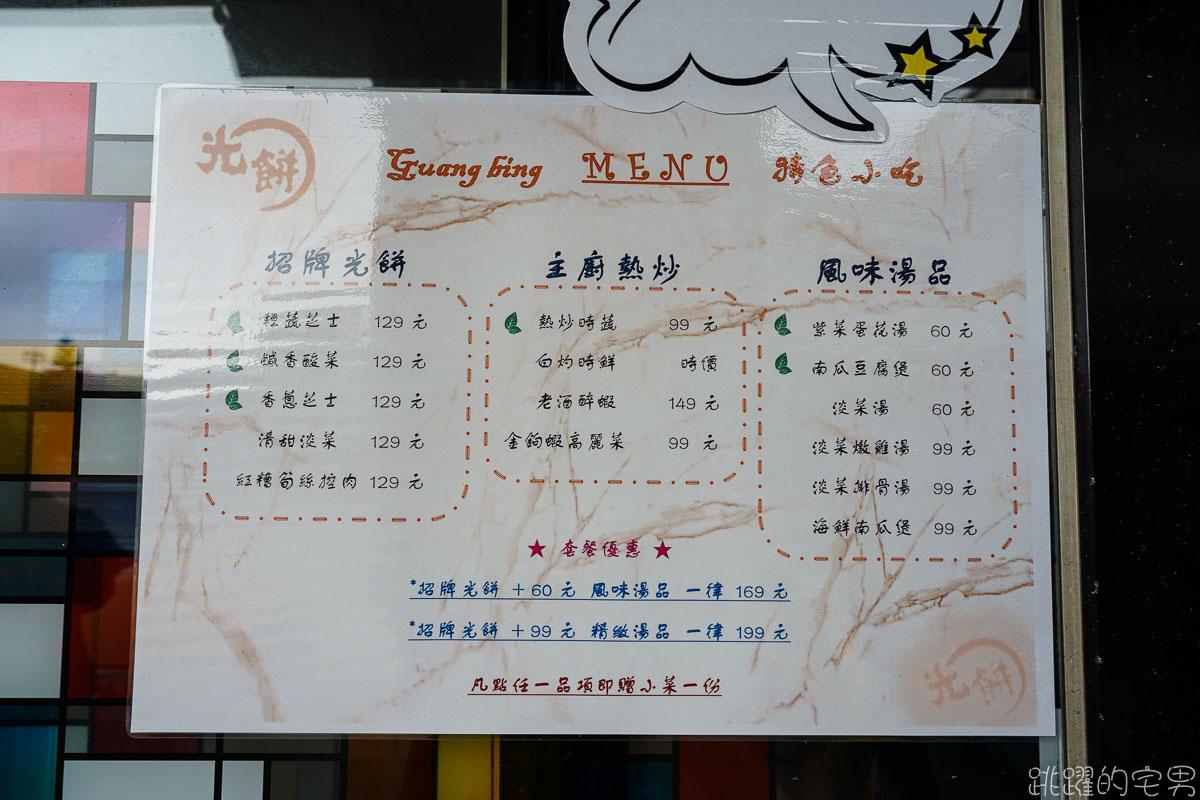 光餅
Guang bing MENU 特色小吃
招牌光餅
輕蔬芝士 129 元
鹹香酸菜 129 元
香蔥芝士 129 元
清甜淡菜 129 元
紅糟筍絲控肉 129 元
主廚熱炒
熱炒時蔬 99 元
白灼時鮮 時價
老酒醉蝦 149 元
金鉤蝦高麗菜 99 元
風味湯品
紫菜蛋花湯 60 元
南瓜豆腐煲 60 元
淡菜湯 60 元
淡菜燉雞湯 99 元
淡菜排骨湯 99 元
海鮮南瓜煲 99 元
★ 套餐優惠 ★
*招牌光餅 + 60 元 風味湯品 一律 169 元
*招牌光餅 + 99 元 精緻湯品 一律 199 元
凡點任一品項即贈小菜一份
光餅
跳躍的宅男